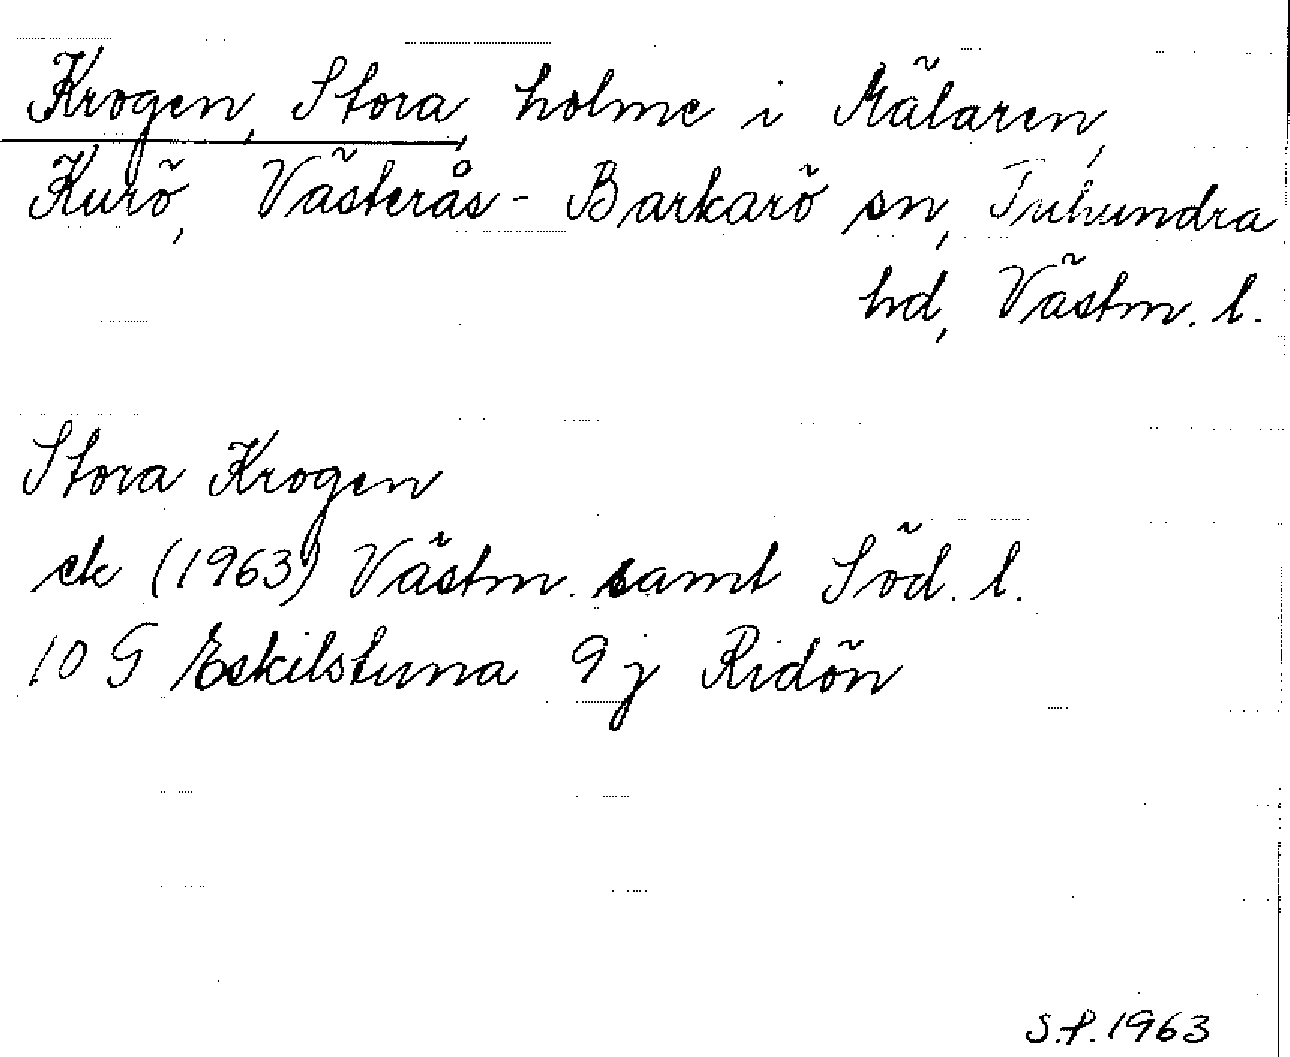 Krogen, Stora, holme i Mälaren,
Kurö, Västerås-Barkarö sn, Tuhundra
hd, Västm. l.
Stora Krogen
ek (1963) Västm. samt Söd. l.
10 G Eskilstuna 9 j Ridön
S.P. 1963